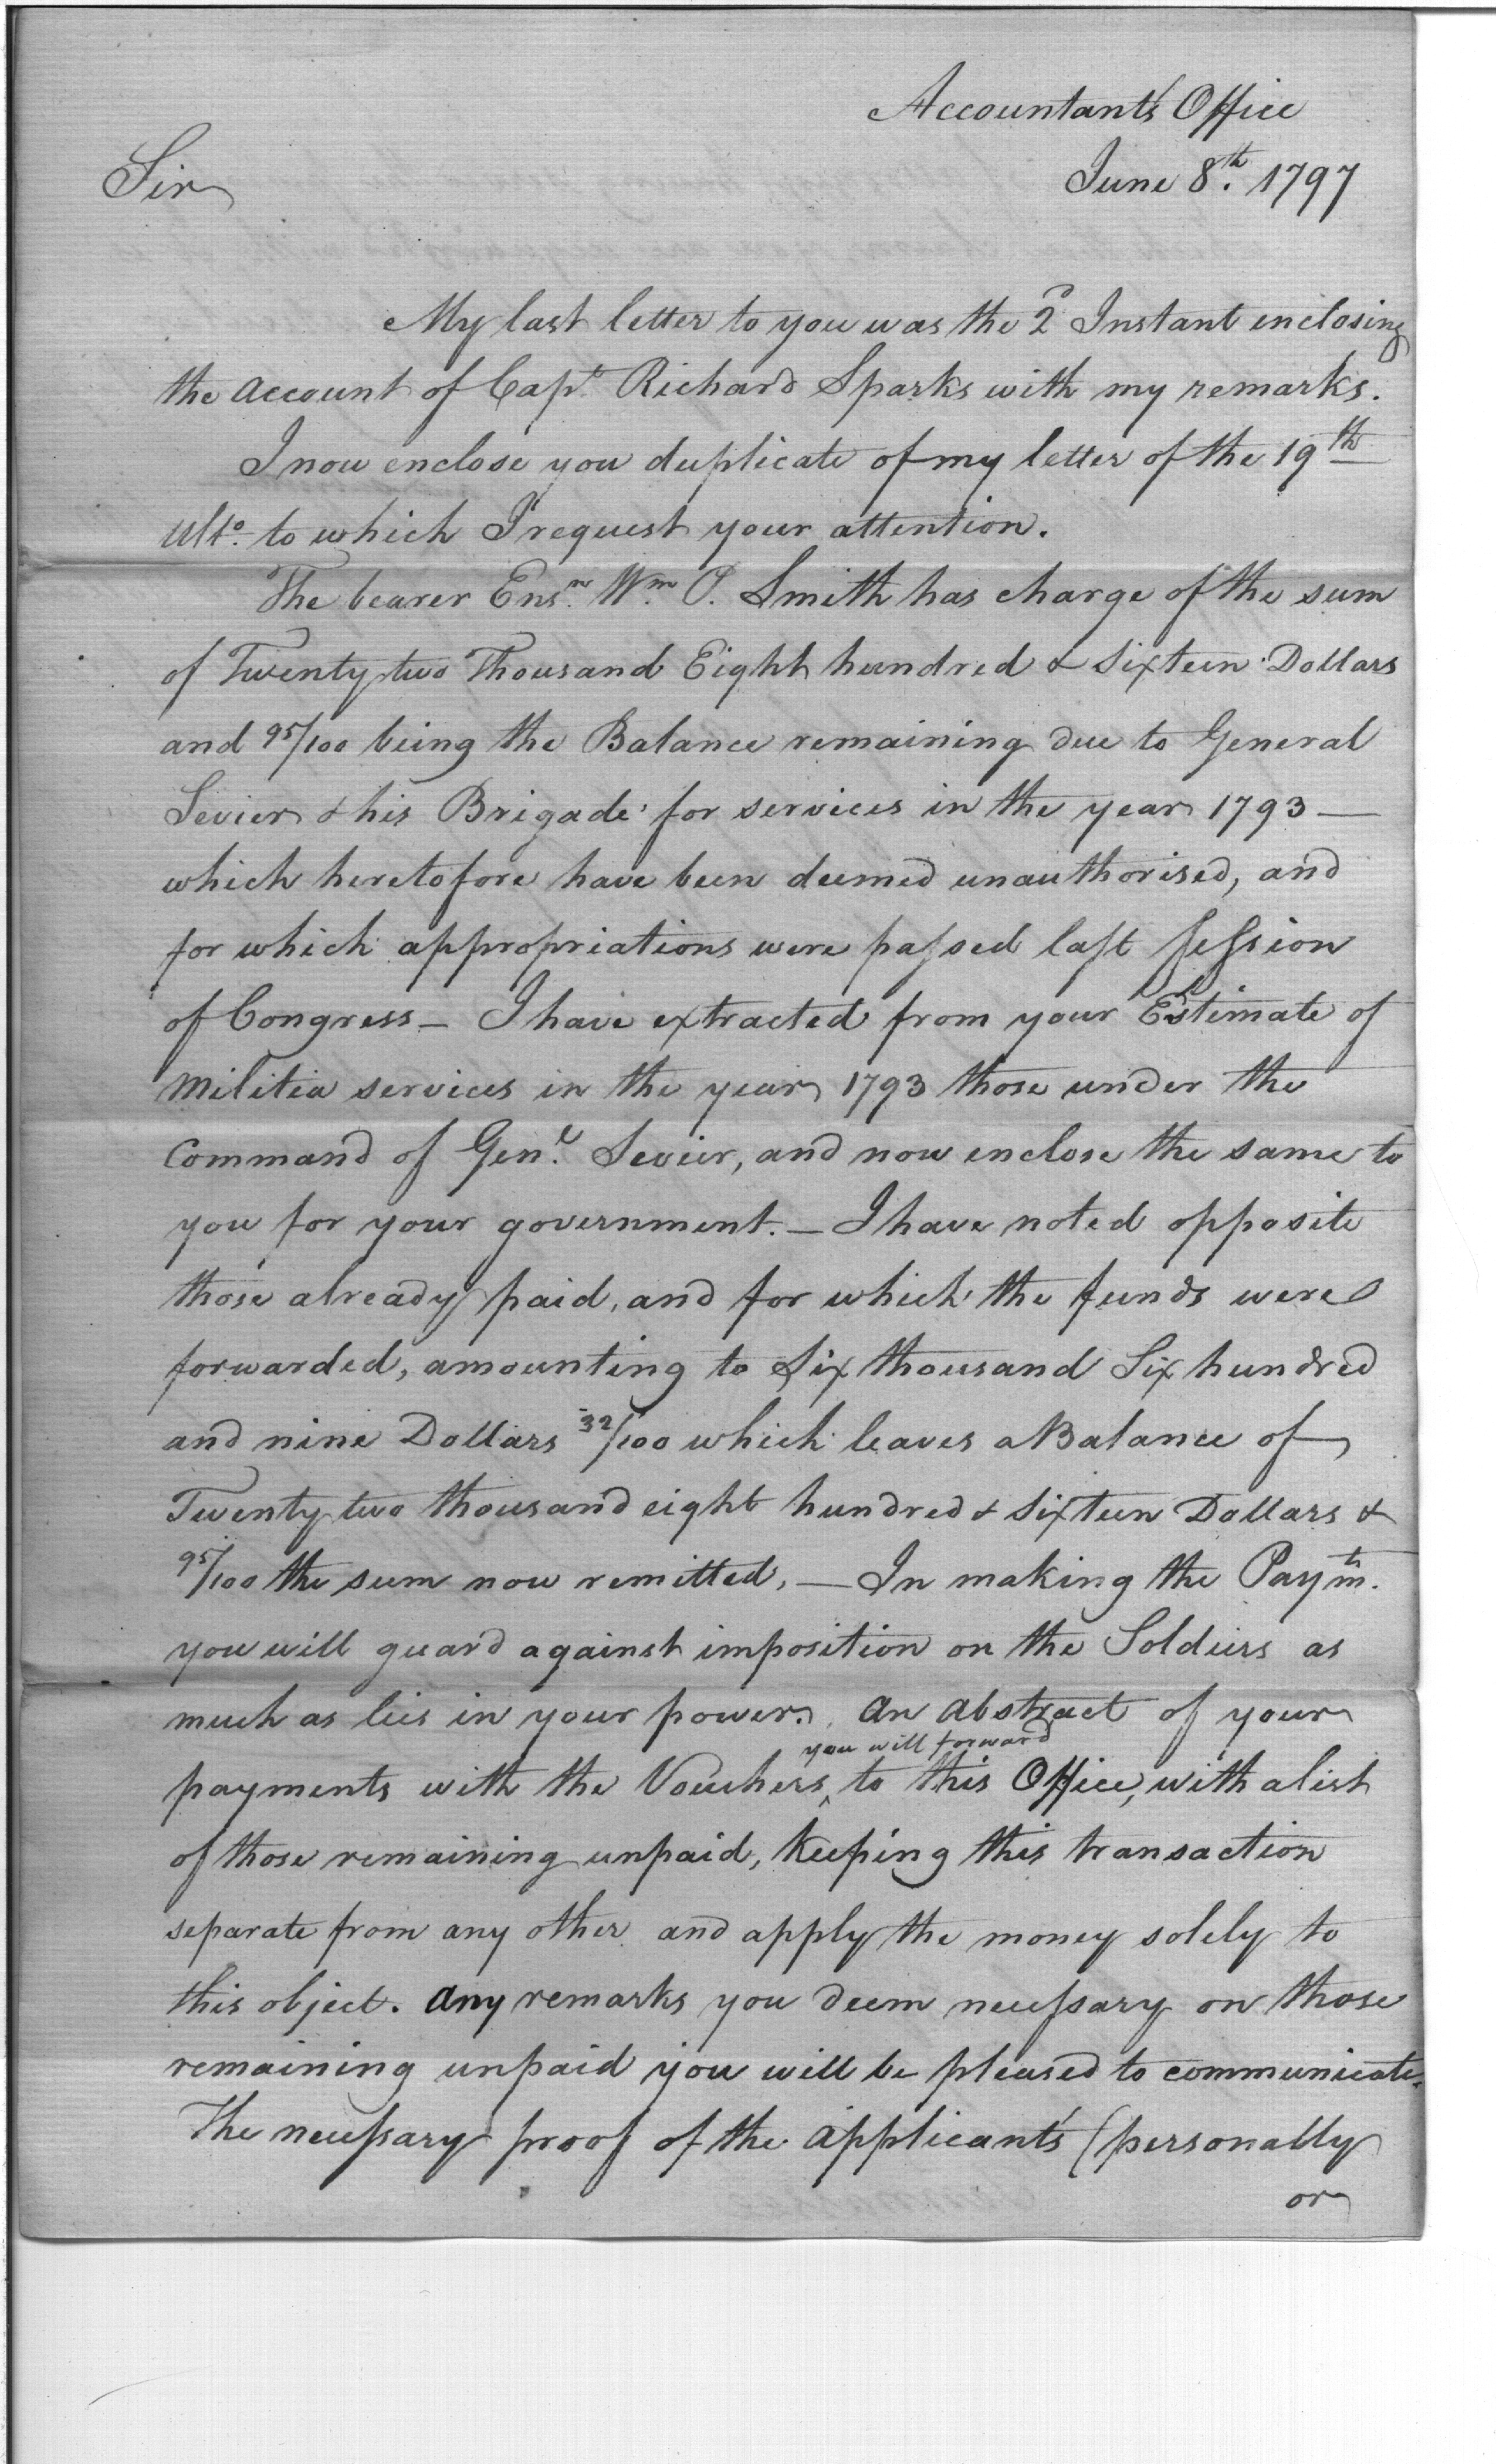 Accountant's Office
June 8th. 1797
Sir
My last letter to you was the 2d Instant enclosing
the account of Capt. Richard Sparks with my remarks.
I now enclose you duplicate of my letter of the 19th
Ulto. to which I request your attention.
The bearer Ensn. Wm. P. Smith has charge of the sum
of Twenty two Thousand Eight hundred & sixteen Dollars
and 95/100 being the Balance remaining due to General
Sevier & his Brigade for services in the year 1793 —
which heretofore have been deemed unauthorised, and
for which appropriations were paſsed laſt ſeſsion
of Congress — I have extracted from your Estimate of
Militia services in the year 1793 those under the
Command of Genl. Sevier, and now enclose the same to
you for your government. — I have noted opposite
those already paid, and for which the funds were
forwarded, amounting to Six thousand Six hundred
and nine Dollars 32/100 which leaves a Balance of
Twenty two thousand eight hundred & sixteen Dollars &
95/100 the sum now remitted, — In making the Paymts.
you will guard against imposition on the Soldiers as
much as lies in your power. An Abstract of your
you will forward
payments with the Vouchers ‸ to this Office, with a list
of those remaining unpaid, Keeping this transaction
separate from any other and apply the money solely to
this object. Any remarks you deem neceſsary on those
remaining unpaid you will be pleased to communicate.
The neceſsary proof of the applicants (personally
or